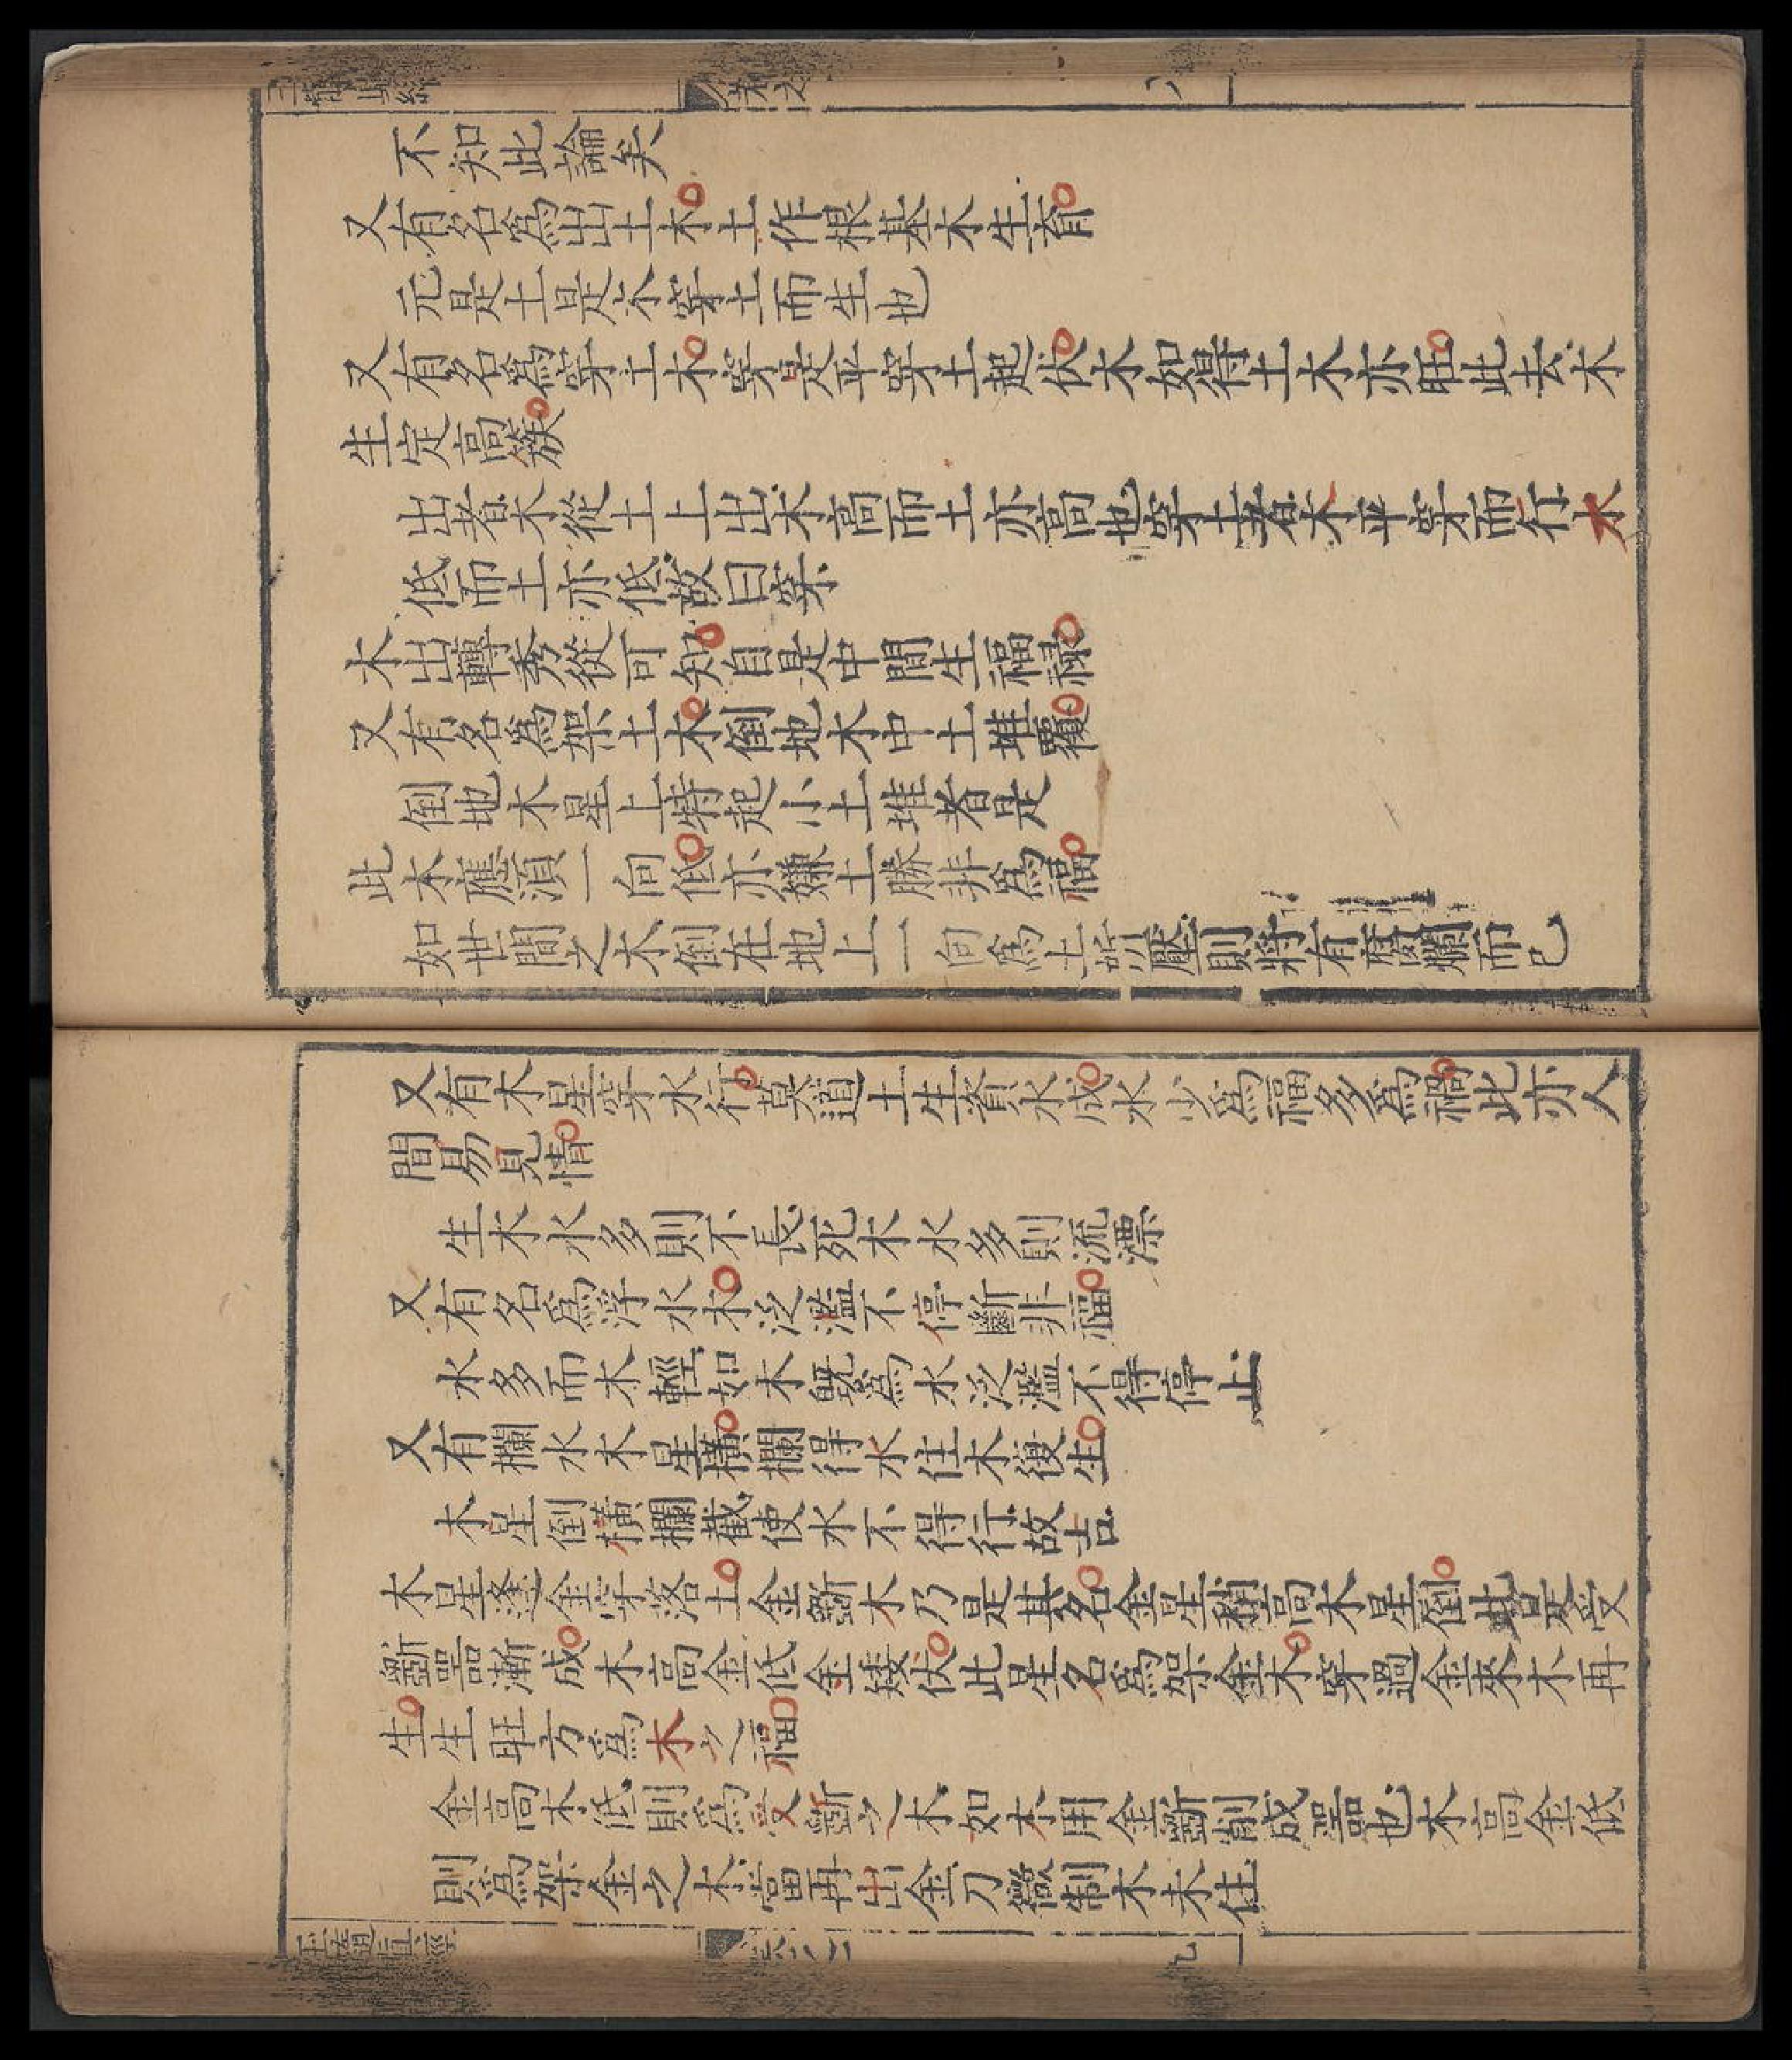 玉髓真經 卷之二 八
不知此論矣
又有名爲出土木土作根基木生育
元是土是木穿土而生也
又有名爲穿土木穿是平穿土起伏木如得土木亦旺此去木
生定高簇
出者木從土上出木高而土亦高也穿土者木平穿而行木
低而土亦低故曰穿
木出轉秀從可知自是中間生福祿
又有名爲架土木倒地木中土堆覆
倒地木星上特起小土堆者是
此木應須一向低亦嫌土勝非爲福
如世間之木倒在地上一向爲土所壓則將有腐爛而已
又有木星穿水行莫道土生資水成水少爲福多爲禍此亦人
間易見情
生木水多則不長死木水多則流漂
又有名爲浮水木泛濫不停斷非福
水多而木輕如木飄爲水泛濫不得停止
又有攔水木星橫攔得水住木復生
木星倒橫攔截使水不得行故吉
木星逢金穿落土金斲木乃是其名金星稍高木星倒此是受
斲器漸成木高金低金矮伏此星名爲架金木穿過金來木再
生生旺方爲木之福
金高木低則爲受斲之木如木用金斲削成器也木高金低
則爲架金之木當再出金刀斲制木未住
玉髓真經 卷之二 九